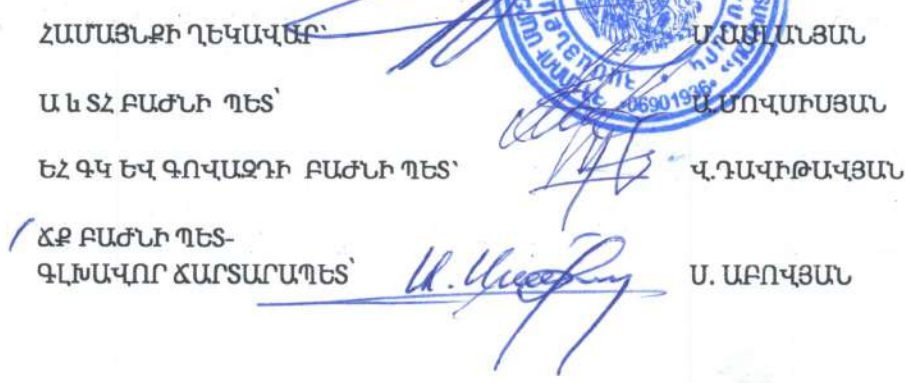 ՀԱՄԱՅՆՔԻ ՂԵԿԱՎԱՐ՝ Մ.ԱՍԼԱՆՅԱՆ
Ա և ՏՀ ԲԱԺՆԻ ՊԵՏ՝ Ա.ՄՈՎՍԻՍՅԱՆ
ԵՀ ԳԿ ԵՎ ԳՈՎԱԶԴԻ ԲԱԺՆԻ ՊԵՏ՝ Վ.ԴԱՎԻԹԱՎՅԱՆ
ՃՔ ԲԱԺՆԻ ՊԵՏ-
ԳԼԽԱՎՈՐ ՃԱՐՏԱՐԱՊԵՏ՝ Ս. ԱԲՈՎՅԱՆ